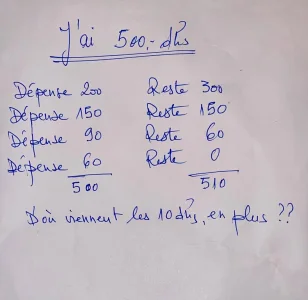 J'ai 500,- dhs
Dépense 200 Reste 300
Dépense 150 Reste 150
Dépense 90 Reste 60
Dépense 60 Reste 0
500 510
D'où viennent les 10 dhs, en plus ??